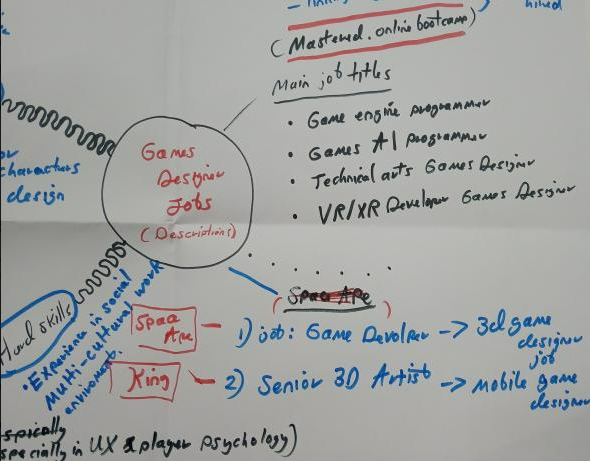 hired
(Mastered.online bootcamp)
Main job titles
• Game engine programmer
• Games AI programmer
• Technical arts Games Designer
• VR/XR Developer Games Designer
Games
Designer
Jobs
(Descriptions)
characters
design
Hard skills
• Experience in social
Multi-cultural work
enviroment.
(Spaa Ape)
Spaa
Ape
1) job: Game Devolper -> 3d game
designer
job
King
2) Senior 3D Artist -> mobile game
designer
specially in UX & player psychology)